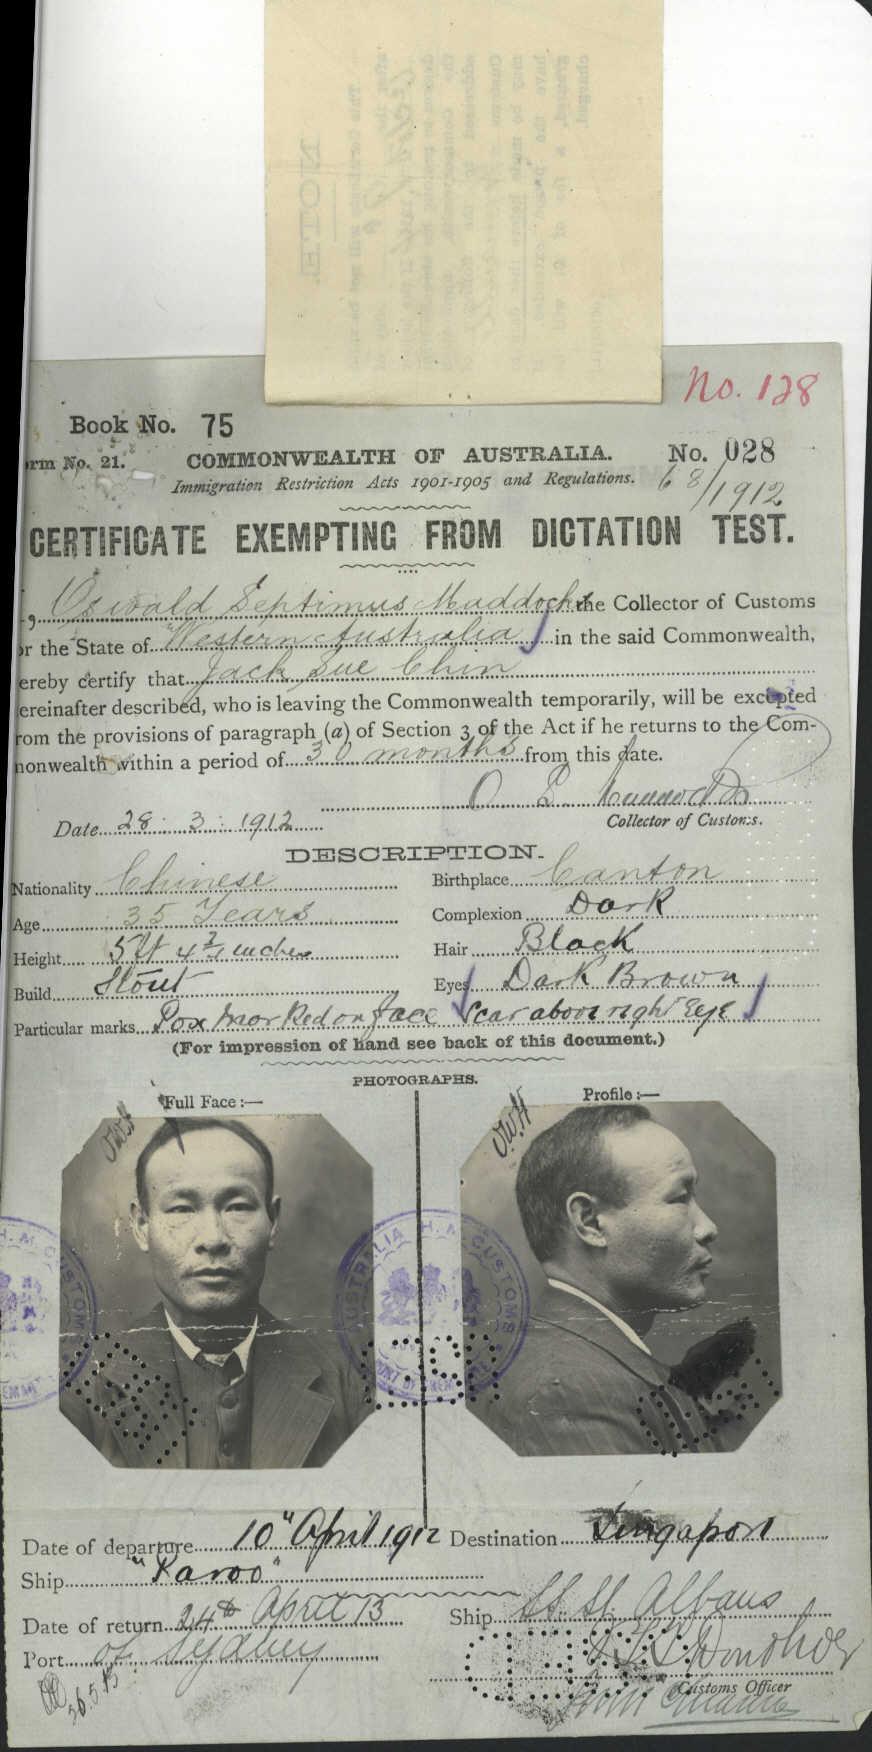 No. 128
Book No. 75
orm No. 21. COMMONWEALTH OF AUSTRALIA. No. 028
Immigration Restriction Acts 1901-1905 and Regulations. 68/1912
CERTIFICATE EXEMPTING FROM DICTATION TEST.
I, Oswald Septimus Maddocks the Collector of Customs
or the State of Western Australia in the said Commonwealth,
ereby certify that Jack Sue Chin
ereinafter described, who is leaving the Commonwealth temporarily, will be excepted
rom the provisions of paragraph (a) of Section 3 of the Act if he returns to the Com-
nonwealth within a period of 30 months from this date.
Date 28. 3. 1912 Collector of Customs.
DESCRIPTION.
Nationality Chinese Birthplace Canton
Age 35 Years Complexion Dark
Height 5 ft 4 3/4 inches Hair Black
Build Stout Eyes Dark Brown
Particular marks Pox marked on face Scar above right Eye
(For impression of hand see back of this document.)
PHOTOGRAPHS.
Full Face:— Profile:—
O.W.H O.W.H
AUSTRALIA H. M. CUSTOMS
Date of departure 10" April 1912 Destination Singapore
Ship "Karoo"
Date of return 24th April 13 Ship SS St Albans
Port of Sydney
Customs Officer
26.5.13